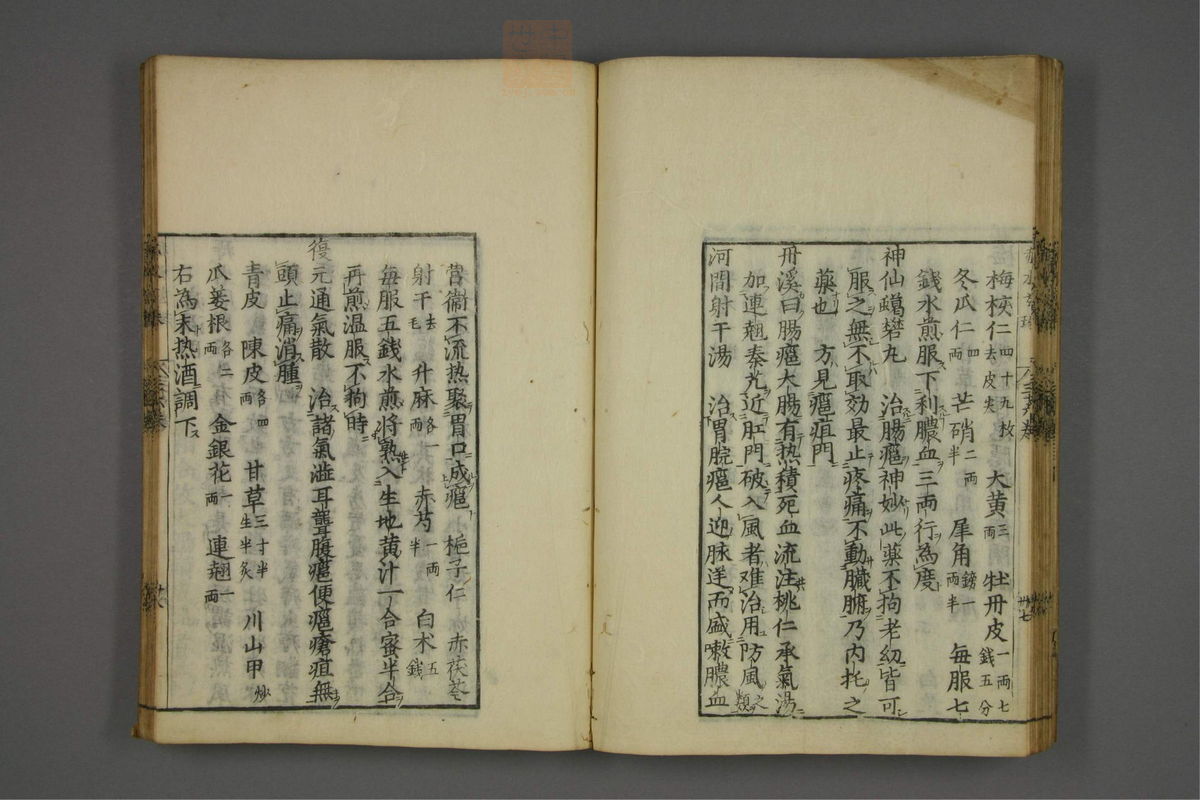 梅核仁四十九枚去皮尖 大黄三両 牡丹皮一両七銭五分
冬瓜仁四両 芒硝二両半 犀角鎊一両半 毎服七
銭水煎服下利膿血三両行為度
神仙蠍虎丸 治腸癰神妙此薬不拘老幼皆可
服之無不取効最止疼痛不動臓腑乃内托之
薬也 方見癰疽門
丹溪曰腸癰大腸有热積死血流注桃仁承氣湯
加連翹秦艽近肛門破入風者难治用防風之類
河間射干湯 治胃脘癰人迎脉逆而盛嗽膿血
营衛不流热聚胃口成癰 梔子仁 赤茯苓
射干去毛 升麻各一両 赤芍一両半 白术五銭
毎服五銭水煎将熟入生地黄汁一合蜜半合
再煎温服不拘時
復元通氣散 治諸氣澁耳聾腹癰便癰瘡疽無
頭止痛消腫
青皮 陳皮各四両 甘草三寸半生半炙 川山甲炒
瓜蔞根各二両 金銀花一両 連翹一両
右為末热酒調下